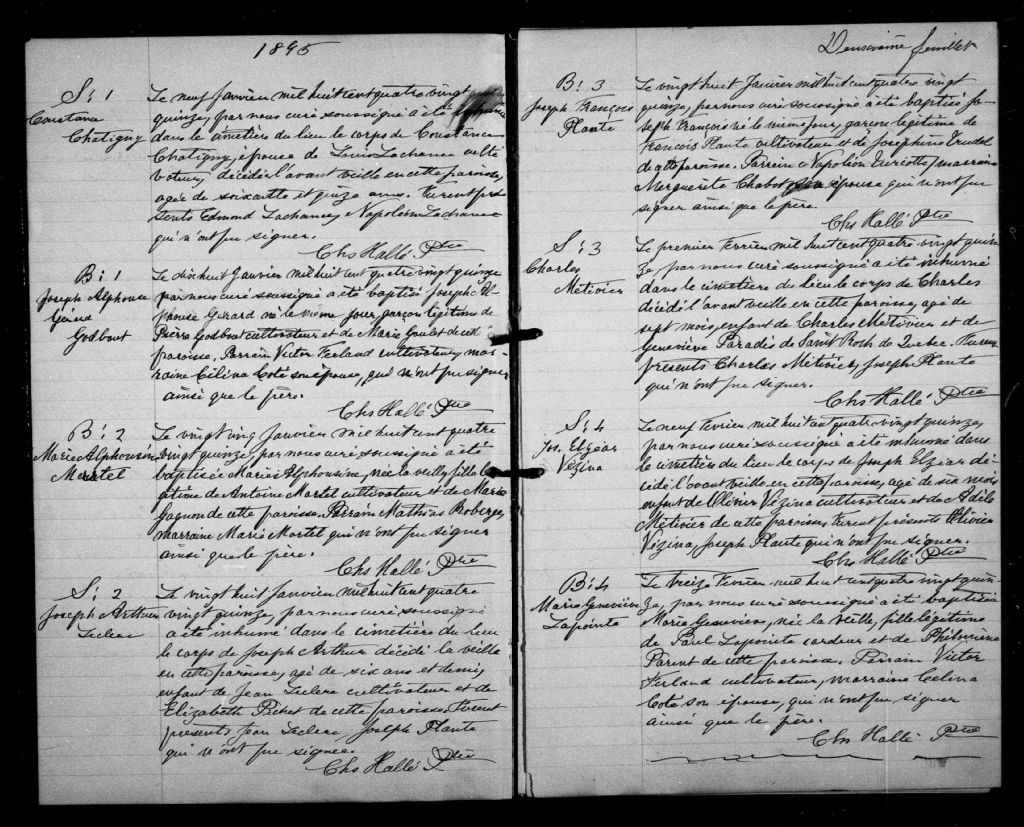 1895
S: 1
Constance
Chatigny
Le neuf Janvier mil huit cent quatre vingt
quinze, par nous curé soussigné a été
dans le cimetière du lieu le corps de Constance
Chatigny, épouse de Louis Lachance culti
vateur, décédée l'avant veille en cette paroisse,
agée de soixante et quinze ans. Furent pré
sents Edmond Lachance, Napoléon Lachance
qui n'ont pu signer.
Chs Hallé Ptre
B: 1
Joseph Alphonse
Gérard
Godbout
Le dix huit Janvier mil huit cent quatre vingt quinze
par nous curé soussigné a été baptisé Joseph Al
phonse Gérard né le même jour, garçon légitime de
Pierre Godbout cultivateur et de Marie Goulet de cette
paroisse. Parrain Victor Ferland cultivateur, mar-
raine Célina Coté son épouse, qui n'ont pu signer
ainsi que le père.
Chs Hallé Ptre
B: 2
Marie Alphonsine
Martel
Le vingt cinq Janvier mil huit cent quatre
vingt quinze, par nous curé soussigné a été
baptisée Marie Alphonsine, née la veille, fille lé
gitime de Antoine Martel cultivateur et de Marie
Gagnon de cette paroisse. Parrain Mathias Roberge,
marraine Marie Martel qui n'ont pu signer
ainsi que le père.
Chs Hallé Ptre
S: 2
Joseph Arthur
Leclerc
Le vingt huit Janvier mil huit cent quatre
vingt quinze, par nous curé soussigné
a été inhumé dans le cimetière du lieu
le corps de Joseph Arthur décédé la veille
en cette paroisse, agé de six ans et demi,
enfant de Jean Leclerc cultivateur et de
Elizabeth Pichet de cette paroisse. Furent
présents Jean Leclerc, Joseph Plante
qui n'ont pu signer.
Chs Hallé Ptre
Deuxième feuillet
B: 3
Joseph François
Plante
Le vingt huit Janvier mil huit cent quatre vingt
quinze, par nous curé soussigné a été baptisé Jo
seph François né le même jour, garçon légitime de
François Plante cultivateur et de Josephine Trudel
de cette paroisse. Parrain Napoléon Turcotte, marraine
Marguerite Chabot son épouse qui n'ont pu
signer ainsi que le père.
Chs Hallé Ptre
S: 3
Charles
Métivier
Le premier Février mil huit cent quatre vingt quin
ze, par nous curé soussigné a été inhumé
dans le cimetière du lieu le corps de Charles
décédé l'avant veille en cette paroisse, agé de
sept mois, enfant de Charles Métivier et de
Geneviève Paradis de Saint Roch de Quebec. Furent
présents Charles Métivier, Joseph Plante
qui n'ont pu signer.
Chs Hallé Ptre
S: 4
Jos. Elzéar
Vézina
Le neuf Février mil huit cent quatre vingt quinze,
par nous curé soussigné a été inhumé dans
le cimetière du lieu le corps de Joseph Elzéar dé-
cédé l'avant veille en cette paroisse, agé de six mois
enfant de Olivier Vézina cultivateur et de Adèle
Métivier de cette paroisse, Furent présents Olivier
Vézina, Joseph Plante qui n'ont pu signer.
Chs Hallé Ptre
B: 4
Marie Geneviève
Lapointe
Le treize Février mil huit cent quatre vingt quin-
ze, par nous curé soussigné a été baptisée
Marie Geneviève, née la veille, fille légitime
de Paul Lapointe cardeur et de
Parent de cette paroisse. Parrain Victor
Ferland cultivateur, marraine Celina
Coté son épouse, qui n'ont pu signer
ainsi que le père.
Chs Hallé Ptre